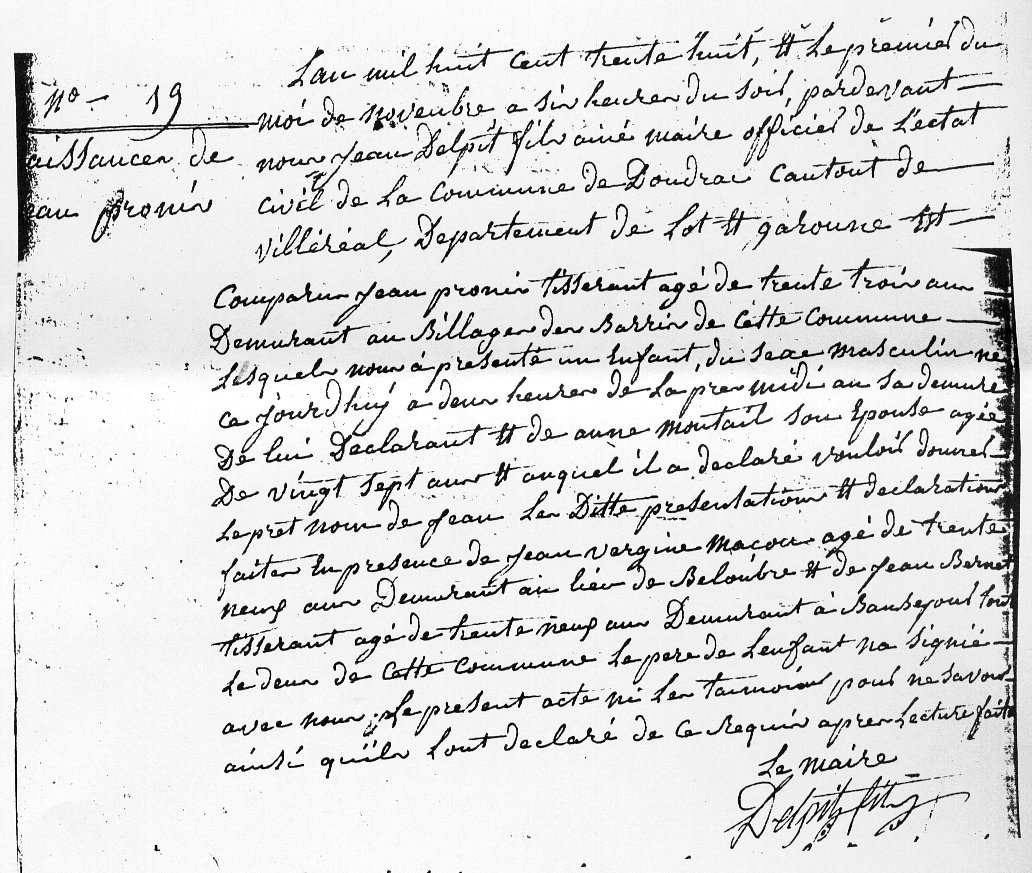 no - 19
aissances de
ean pronis
Lan mil huit cent trente huit, et le premier du
moi de novenbre a six heures du soir, pardevant
nous Jean Delpit fils ainé maire officier de L'ectat
civil de La Commune de Doudrac Cantont de
villéréal, Departement de Lot et garonne Est
Comparus Jean pronis tisserant agé de trente trois ans
Demurant au Billages des Barris de Cette Commune
Lesquels nous à présenté un Enfant, du sexe masculin ne
ce Jourdhuj a deux heures de La pres midi au sa demure
De lui Declarant et de anne montail son Epouse agée
De vingt sept ans et auquel il a declaré vouloir donner
Le pret nom de Jean Les Ditte presentations et declaration
faites En presence de Jean vergine Macon agé de trente
neuf ans Demurant au liéu de Beloûbre et de Jean Bernet
tisserant agé de trente neuf ans Demurant à Bausejour tout
Le deux de Cette Commune Le pere de Lenfant na signié
avec nous Le present acte ni Les taimoins pour ne savoir
ainsi quils Lont declaré de Ce Requis apres Lecture faite
Le Maire
Delpit fils